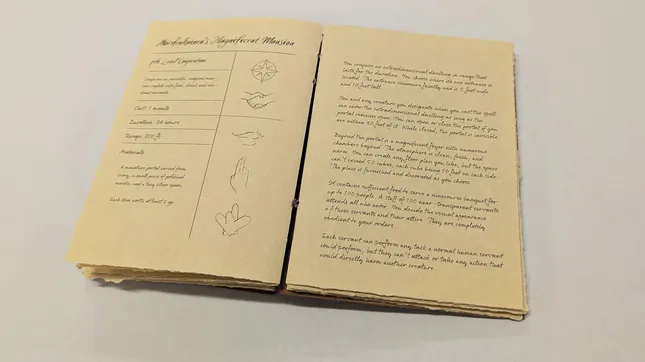 Mordenkainen's Magnificent Mansion
7th Level Conjuration
Cast: 1 minute
Duration: 24 hours
Range: 300 ft
Materials:
A miniature portal carved from
ivory, a small piece of polished
marble, and a tiny silver spoon
Each item worth at least 5 gp
You conjure an extradimensional dwelling in range that
lasts for the duration. You choose where its one entrance is
located. The entrance shimmers faintly and is 5 feet wide
and 10 feet tall.
You and any creature you designate when you cast the spell
can enter the extradimensional dwelling as long as the
portal remains open. You can open or close the portal if you
are within 30 feet of it. While closed, the portal is invisible
Beyond the portal is a magnificent foyer with numerous
chambers beyond. The atmosphere is clean, fresh, and
warm. You can create any floor plan you like, but the space
can't exceed 50 cubes, each cube being 10 feet on each side.
The place is furnished and decorated as you choose.
It contains sufficient food to serve a ninecourse banquet for
up to 100 people. A staff of 100 near-transparent servants
attends all who enter. You decide the visual appearance
of these servants and their attire. They are completely
obedient to your orders.
Each servant can perform any task a normal human servant
could perform, but they can't attack or take any action that
would directly harm another creature.